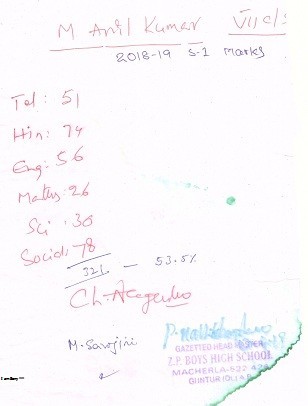 M Anil Kumar VII cls
2018-19 S-1 Marks
Tel : 51
Hin : 74
Eng : 56
Maths : 26
Sci : 36
Social : 78
321 — 53.5%
M. Sarojini
GAZETTED HEAD MASTER
Z.P. BOYS HIGH SCHOOL
MACHERLA-522 426
GUNTUR (Dt) A.P